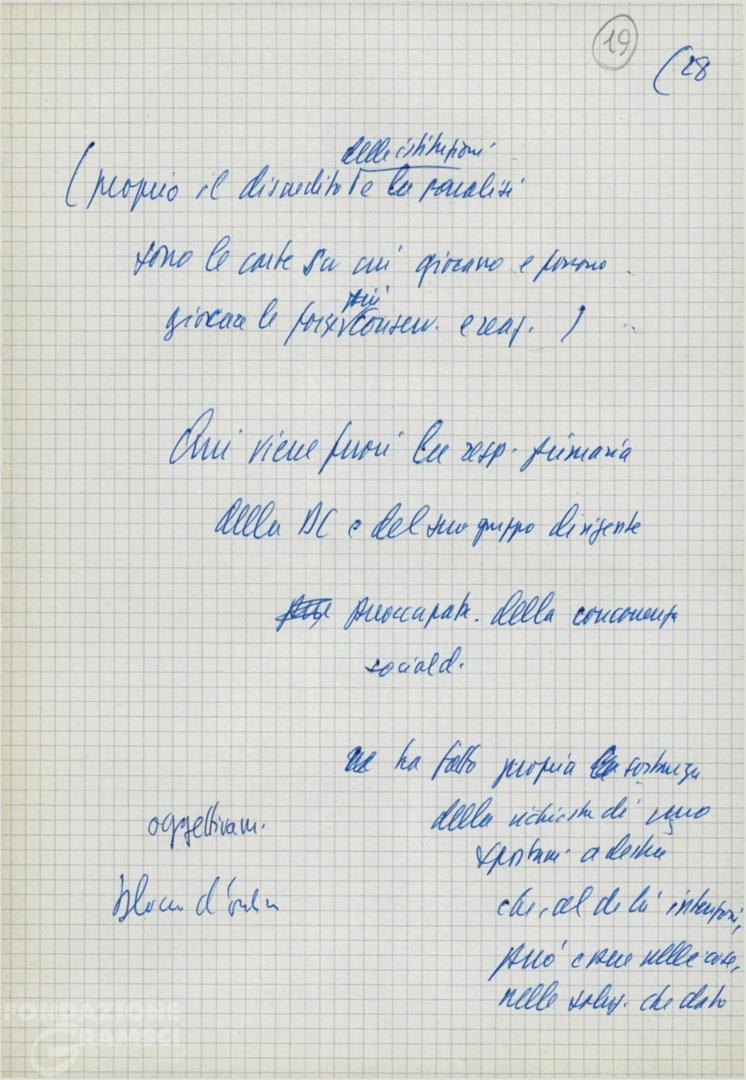 19
(28
delle istituzioni
(proprio il discredito e la paralisi
sono le carte su cui giocano e possono
giocare le forze più conserv. e reaz. )
Qui viene fuori la resp. primaria
della DC e del suo gruppo dirigente
preoccupata. della concorrenza
sociald.
ne ha fatto propria la sostanza
della richiesta di uno
spostam. a destra
che, al di là intenzioni,
può essere nelle cose,
nelle soluz. che dato
oggettivam.
blocco d'ordine
FONDAZIONE
GRAMSCI